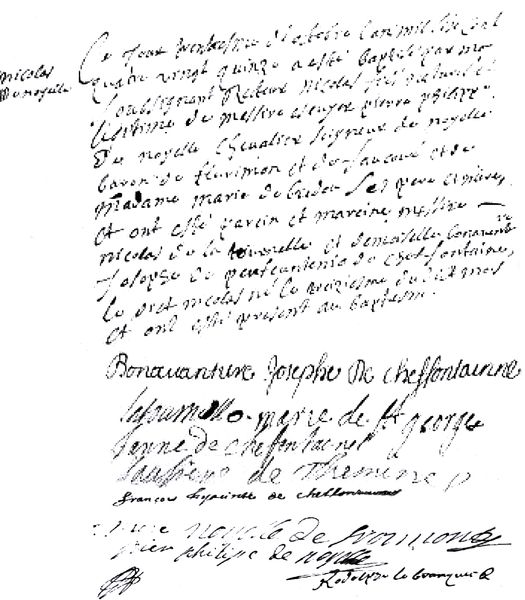 nicolas
de noyelle
Ce jour trentiesme d'octobre l'an mil six cent
quatre vingt quinze a esté baptisé par moy
soubsignant Recteur nicolas fils naturel et
legitime de messire escuyer pierre philippe
de noyelle chevalier seigneur de noyelle
baron de et de et de
madame marie de ses pere et mere,
et ont esté parein et mareine messire
nicolas de la tournelle et demoiselle bonaventure
Josephe de penfeuntenio de cheffontaine,
le dict nicolas né le treiziesme du dict mois
et ont esté present au baptesme.
Bonavanture Josephe De cheffontainne
latournelle marie de St george
Jenne de cheffontaines
de Themines
francois hyacinte de cheffontaines
noyelle de
philipe de noyelle
Rodolphe le